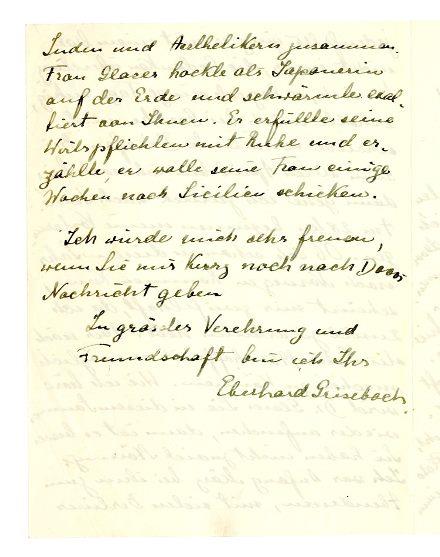 Juden und Aesthetikern zusammen.
Frau Glaser hockte als Japanerin
auf der Erde und schwärmte exal-
tiert von Ihnen. Er erfüllte seine
Wirtspflichten mit Ruhe und er-
zählte, er wolle seine Frau einige
Wochen nach Sicilien schicken.
Ich würde mich sehr freuen,
wenn Sie mir kurz noch nach Davos
Nachricht geben
In grosser Verehrung und
Freundschaft bin ich Ihr
Eberhard Grisebach.